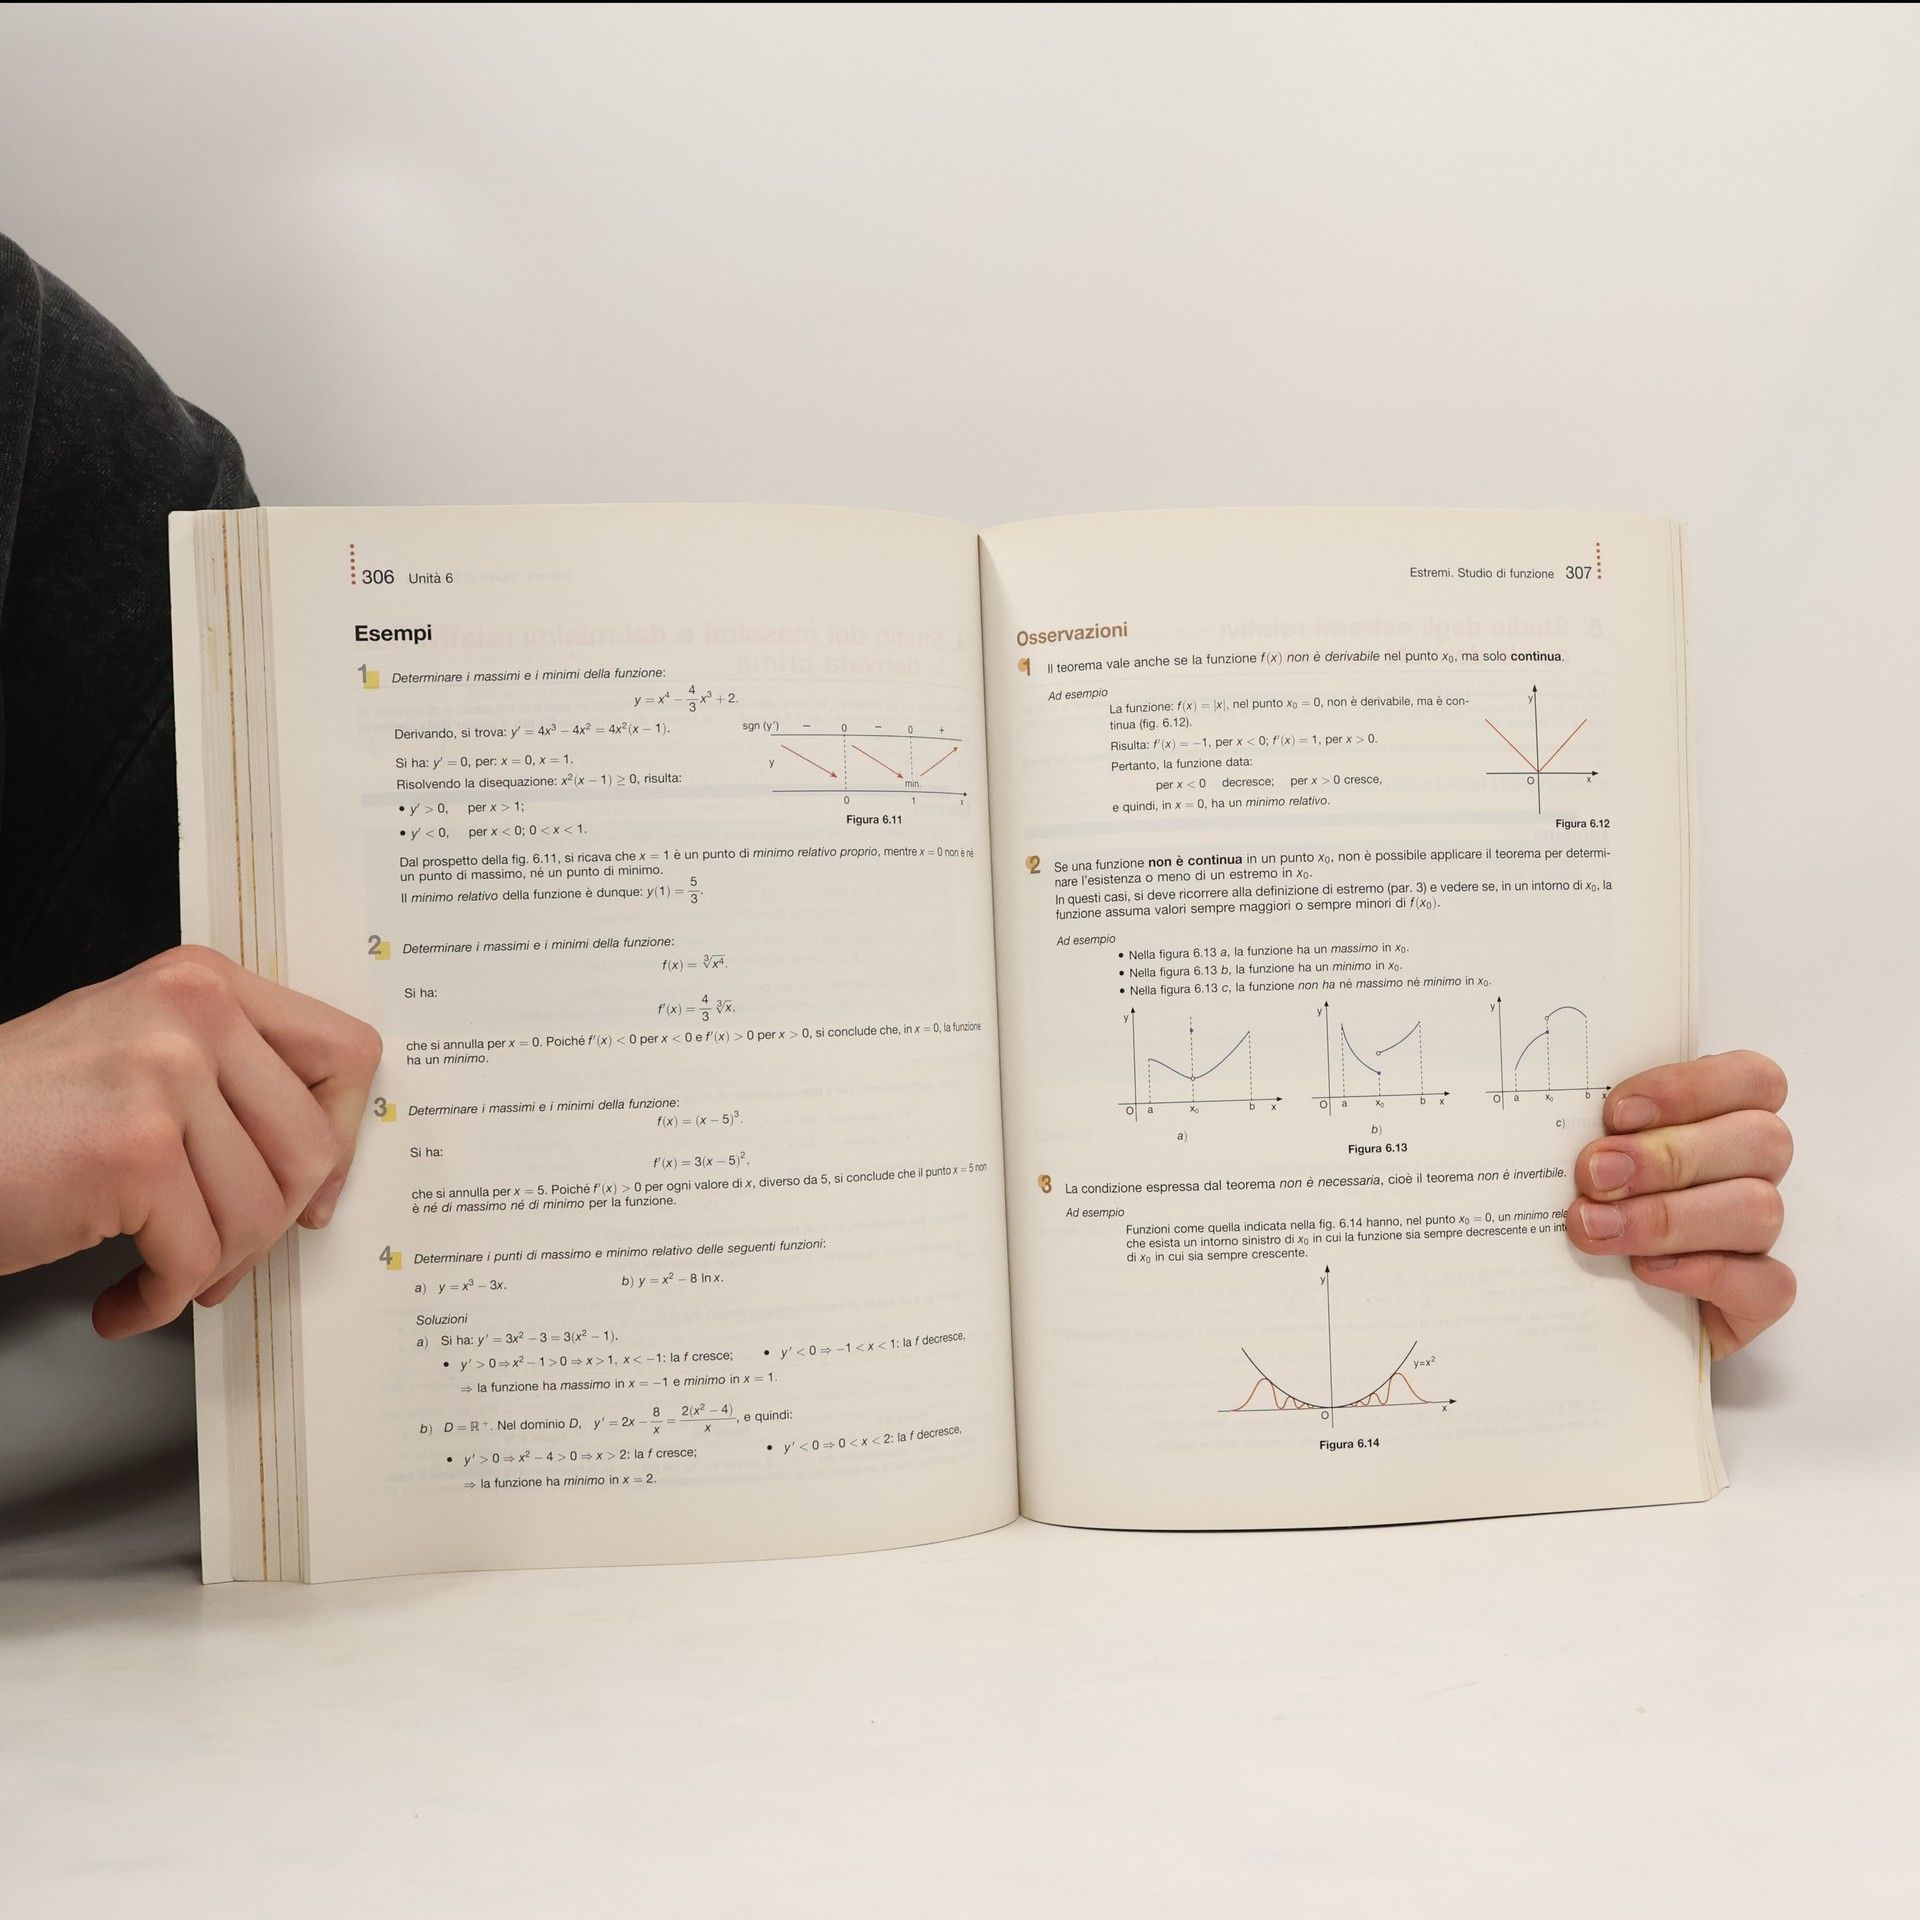 306 Unità 6
Esempi
1 Determinare i massimi e i minimi della funzione:
y = x⁴ − 4/3 x³ + 2.
Derivando, si trova: y′ = 4x³ − 4x² = 4x²(x − 1).
Si ha: y′ = 0, per: x = 0, x = 1.
Risolvendo la disequazione: x²(x − 1) ≥ 0, risulta:
• y′ > 0, per x > 1;
• y′ < 0, per x < 0; 0 < x < 1.
sgn (y′) − 0 − 0 +
y
min.
0 1 x
Figura 6.11
Dal prospetto della fig. 6.11, si ricava che x = 1 è un punto di minimo relativo proprio, mentre x = 0 non è né
un punto di massimo, né un punto di minimo.
Il minimo relativo della funzione è dunque: y(1) = 5/3.
2 Determinare i massimi e i minimi della funzione:
f(x) = ∛x⁴.
Si ha:
f′(x) = 4/3 ∛x,
che si annulla per x = 0. Poiché f′(x) < 0 per x < 0 e f′(x) > 0 per x > 0, si conclude che, in x = 0, la funzione
ha un minimo.
3 Determinare i massimi e i minimi della funzione:
f(x) = (x − 5)³.
Si ha:
f′(x) = 3(x − 5)²,
che si annulla per x = 5. Poiché f′(x) > 0 per ogni valore di x, diverso da 5, si conclude che il punto x = 5 non
è né di massimo né di minimo per la funzione.
4 Determinare i punti di massimo e minimo relativo delle seguenti funzioni:
a) y = x³ − 3x. b) y = x² − 8 ln x.
Soluzioni
a) Si ha: y′ = 3x² − 3 = 3(x² − 1).
• y′ > 0 ⇒ x² − 1 > 0 ⇒ x > 1, x < −1: la f cresce; • y′ < 0 ⇒ −1 < x < 1: la f decresce,
⇒ la funzione ha massimo in x = −1 e minimo in x = 1.
b) D = ℝ⁺. Nel dominio D, y′ = 2x − 8/x = 2(x² − 4)/x, e quindi:
• y′ > 0 ⇒ x² − 4 > 0 ⇒ x > 2: la f cresce; • y′ < 0 ⇒ 0 < x < 2: la f decresce,
⇒ la funzione ha minimo in x = 2.
Estremi. Studio di funzione 307
Osservazioni
1 Il teorema vale anche se la funzione f(x) non è derivabile nel punto x₀, ma solo continua.
Ad esempio
La funzione: f(x) = |x|, nel punto x₀ = 0, non è derivabile, ma è con-
tinua (fig. 6.12).
Risulta: f′(x) = −1, per x < 0; f′(x) = 1, per x > 0.
Pertanto, la funzione data:
per x < 0 decresce; per x > 0 cresce,
e quindi, in x = 0, ha un minimo relativo.
y
O x
Figura 6.12
2 Se una funzione non è continua in un punto x₀, non è possibile applicare il teorema per determi-
nare l'esistenza o meno di un estremo in x₀.
In questi casi, si deve ricorrere alla definizione di estremo (par. 3) e vedere se, in un intorno di x₀, la
funzione assuma valori sempre maggiori o sempre minori di f(x₀).
Ad esempio
• Nella figura 6.13 a, la funzione ha un massimo in x₀.
• Nella figura 6.13 b, la funzione ha un minimo in x₀.
• Nella figura 6.13 c, la funzione non ha né massimo né minimo in x₀.
y y y
O a x₀ b x O a x₀ b x O a x₀ b x
a) b) c)
Figura 6.13
3 La condizione espressa dal teorema non è necessaria, cioè il teorema non è invertibile.
Ad esempio
Funzioni come quella indicata nella fig. 6.14 hanno, nel punto x₀ = 0, un minimo
che esista un intorno sinistro di x₀ in cui la funzione sia sempre decrescente e un
di x₀ in cui sia sempre crescente.
y
y=x²
O x
Figura 6.14